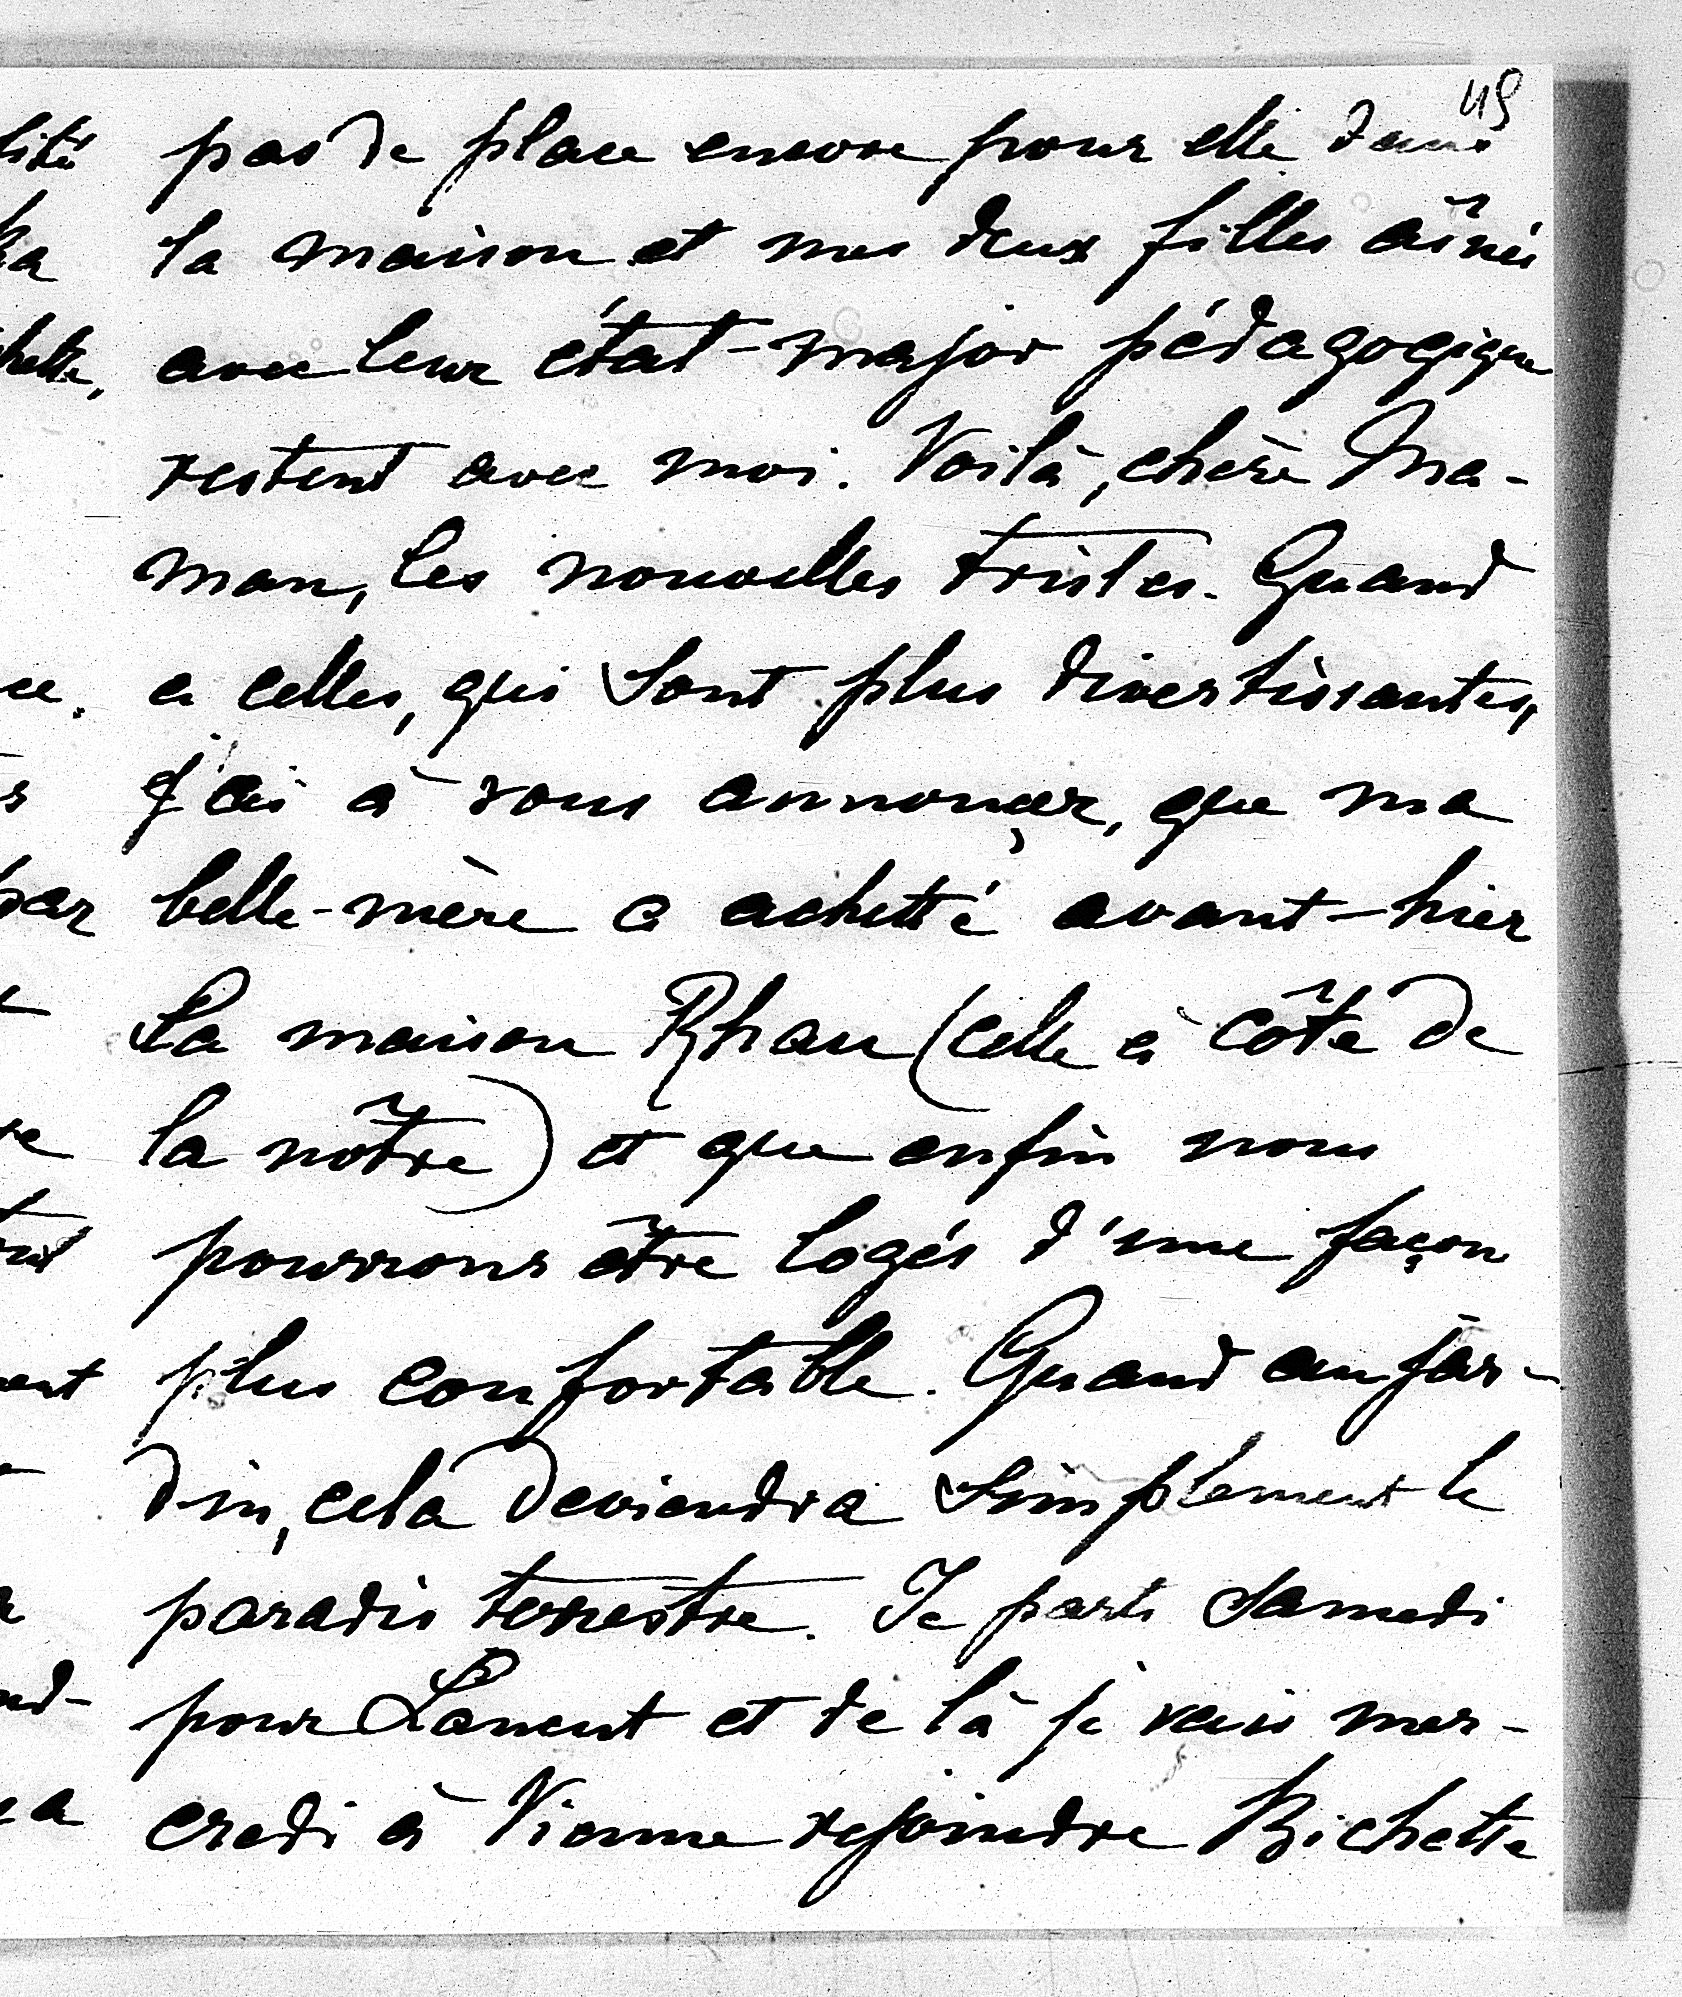 49
lité pas de place encore pour elle dans
ka la maison et mes deux filles aînées
chette, avec leur état-major pédagogique
restent avec moi. Voilà, chère Ma-
man, les nouvelles tristes. Quand
ce. à celles, qui sont plus divertissantes,
j'ai à vous annonçer, que ma
par belle-mère a achetté avant-hier
la maison Rhau (celle à côté de
la nôtre) et que enfin nous
pourrons être logés d'une façon
plus confortable. Quand au jar-
din, cela deviendra simplement le
paradis terrestre. Je parts samedi
pour et de là je vais mer-
credi à Vienne rejoindre Bichette